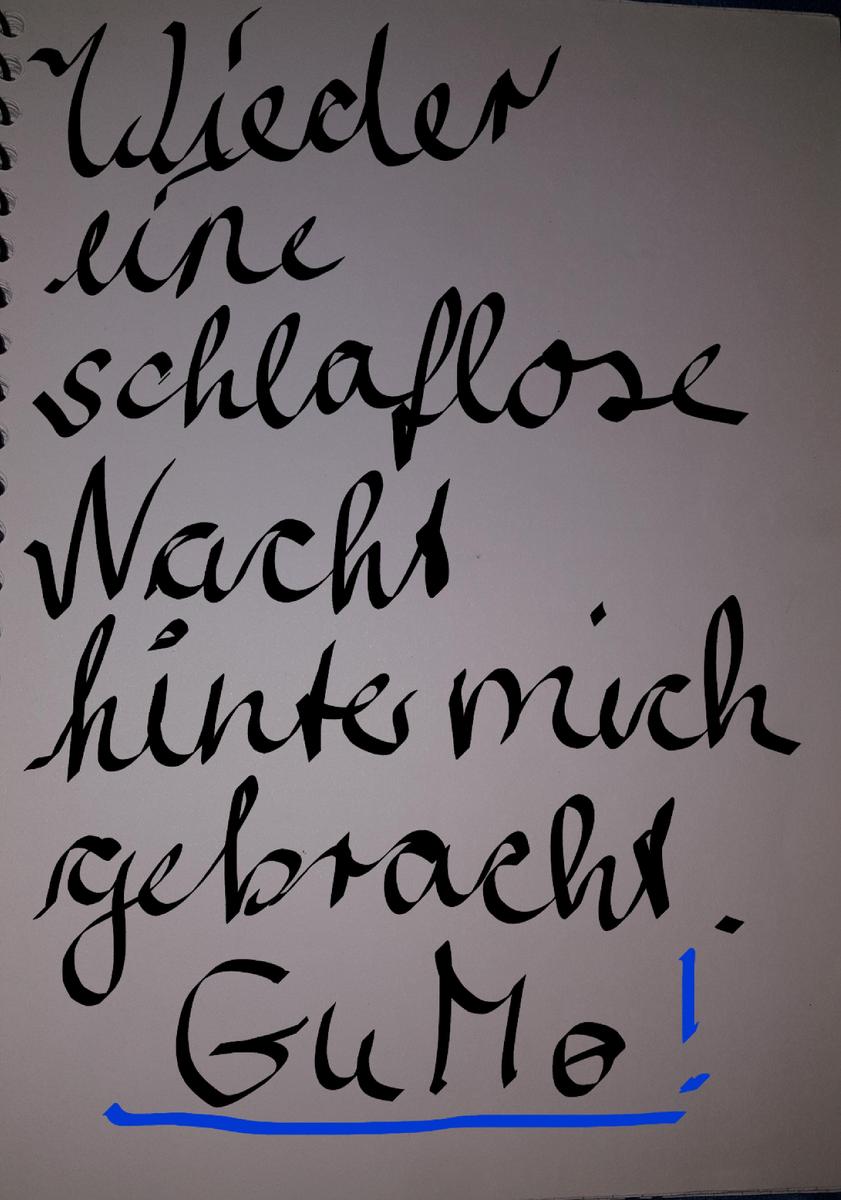 Wieder
eine
schlaflose
Nacht
hinter mich
gebracht.
GuMo!